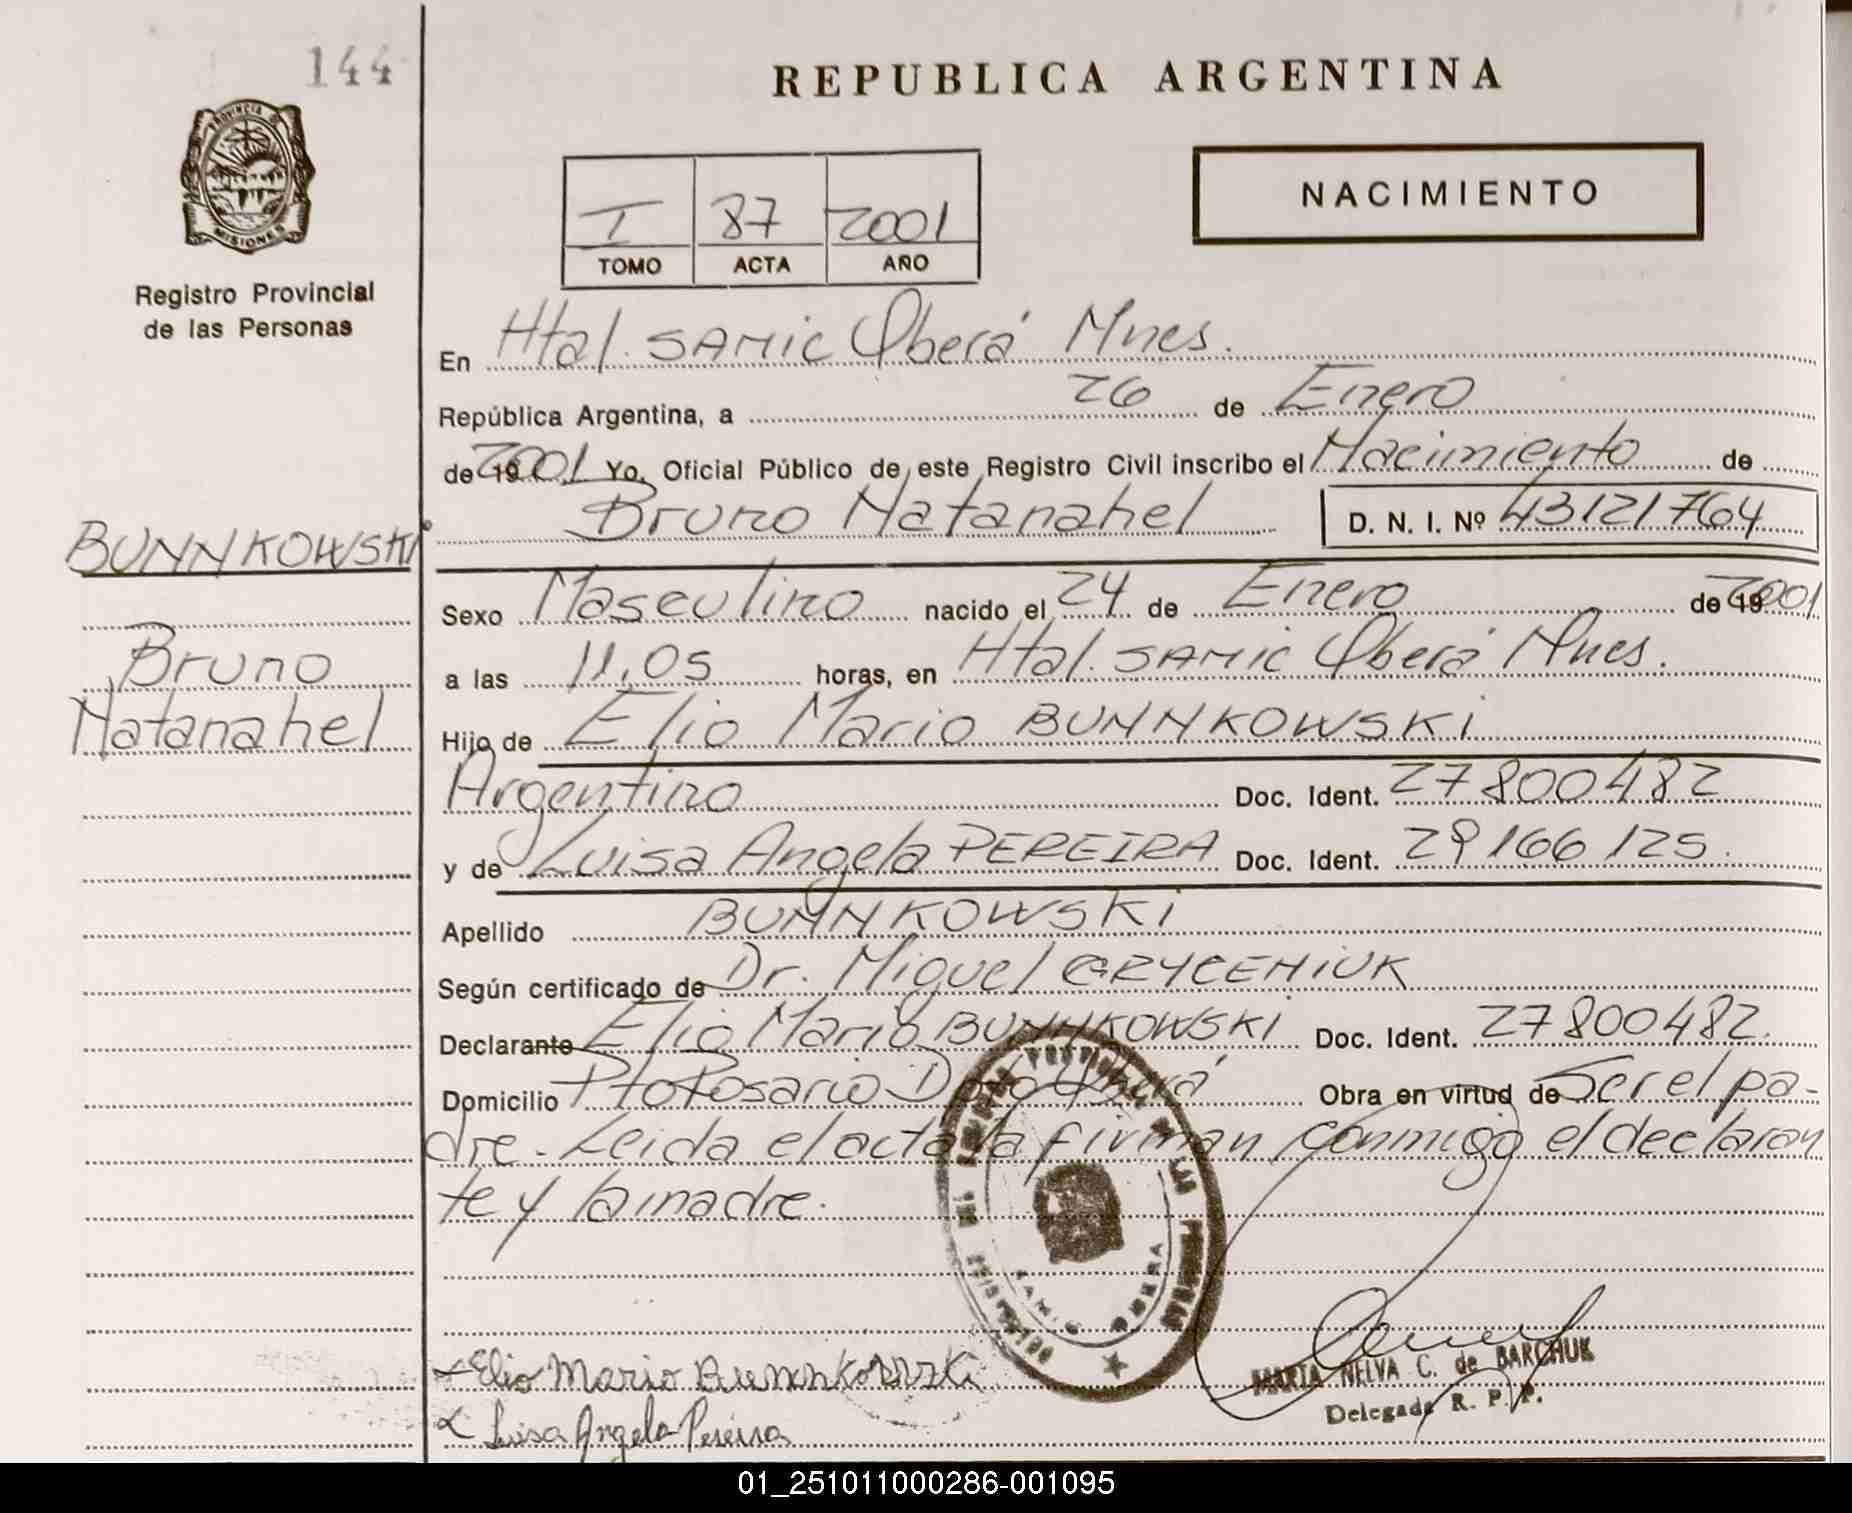 144
REPUBLICA ARGENTINA
PROVINCIA DE
MISIONES
Registro Provincial
de las Personas
I 87 2001
TOMO ACTA AÑO
NACIMIENTO
En Htal. SAMIC Oberá Mnes.
República Argentina, a 26 de Enero
de 19 2001 Yo, Oficial Público de este Registro Civil inscribo el Nacimiento de
Bruno Natanahel D. N. I. Nº 43121764
BUNNKOWSKI
Bruno
Natanahel
Sexo Masculino nacido el 24 de Enero de 19 2001
a las 11,05 horas, en Htal. SAMIC Oberá Mnes.
Hijo de Elio Mario BUNNKOWSKI
Argentino Doc. Ident. 27800482
y de Luisa Angela PEREIRA Doc. Ident. 29166125.
Apellido BUNNKOWSKI
Según certificado de Dr. Miguel GRYCENIUK
Declarante Elio Mario BUNNKOWSKI Doc. Ident. 27800482.
Domicilio Pto Rosario Dpto Oberá Obra en virtud de Ser el pa-
dre. Leida el acta la firman conmigo el declaran
te y la madre.
Elio Mario Bunnkowski
Luisa Angela Pereira
MARTA NELVA C. de BARCHUK
Delegada R. P. P.
01_251011000286-001095